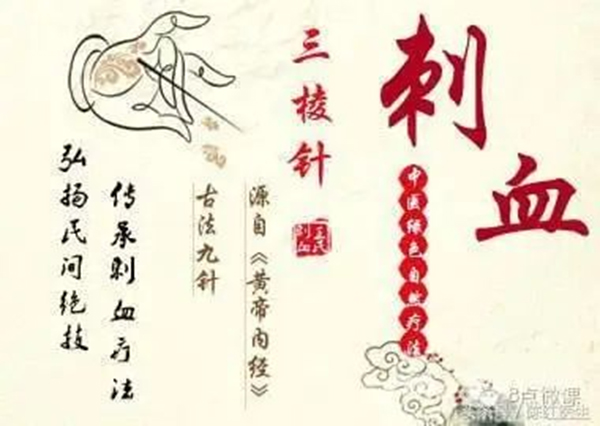 刺血
中医绿色自然疗法
三棱针
王氏刺血
源自《黄帝内经》
古法九针
传承刺血疗法
弘扬民间绝技
8点微课